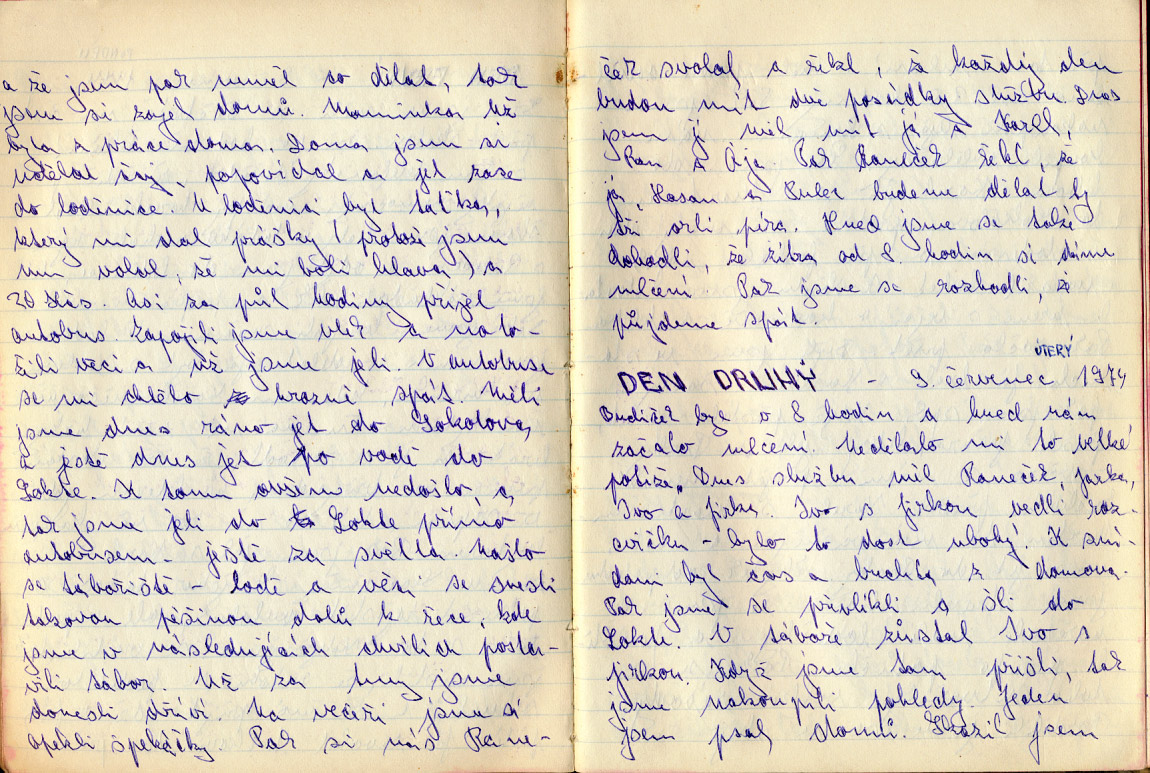 a že jsem pak neměl co dělat, tak
jsem si zajel domů. Maminka už
byla z práce doma. Doma jsem si
udělal čaj, popovídal a jel zase
do loděnice. U loděnici byl taťka,
který mi dal prášky (protože jsem
mu volal, že mi bolí hlava) a
20 Kčs. Asi za půl hodiny přijel
autobus. Zapojili jsme vlek a nalo-
žili věci a už jsme jeli. V autobuse
se mi chtělo hrozně spát. Měli
jsme dnes ráno jet do Sokolova,
a ještě dnes jet po vodě do
Lokte. K tomu ovšem nedošlo, a
tak jsme jeli do Lokte přímo
autobusem. Ještě za světla našlo
se tábořiště - lodě a věci se snesli
takovou pěšinou dolů k řece, kde
jsme v následujících chvílích posta-
vili tábor. Už za tmy jsme
donesli dříví. Na večeři jsme si
opekli špekáčky. Pak si nás Rane-
ček svolal a řekl, že každý den
budou mít dvě posádky službu. Dnes
jsem ji měl mít já a Karel,
Pan a Ája. Pak Raneček řekl, že
já, Hasan a Bulec budeme dělat by
tři orlí péra. Hned jsme se také
dohodli, že zítra od 8 hodin si dáme
mlčení. Pak jsme se rozhodli, že
půjdeme spát.
ÚTERÝ
DEN DRUHÝ - 9. červenec 1974
Budíček byl v 8 hodin a hned nám
začalo mlčení. Nedělalo mi to velké
potíže. Dnes službu měl Raneček, Jarka,
Ivo a Jirka. Ivo s Jirkou vedli roz-
cvičku - bylo to dost ubohý. K sní-
dani byl čas a buchty z domova.
Pak jsme se převlikli a šli do
Lokte. V táboře zůstal Ivo s
Jirkou. Když jsme tam přišli, tak
jsme nakoupili pohledy. Jeden
jsem psal domů. Sháněl jsem